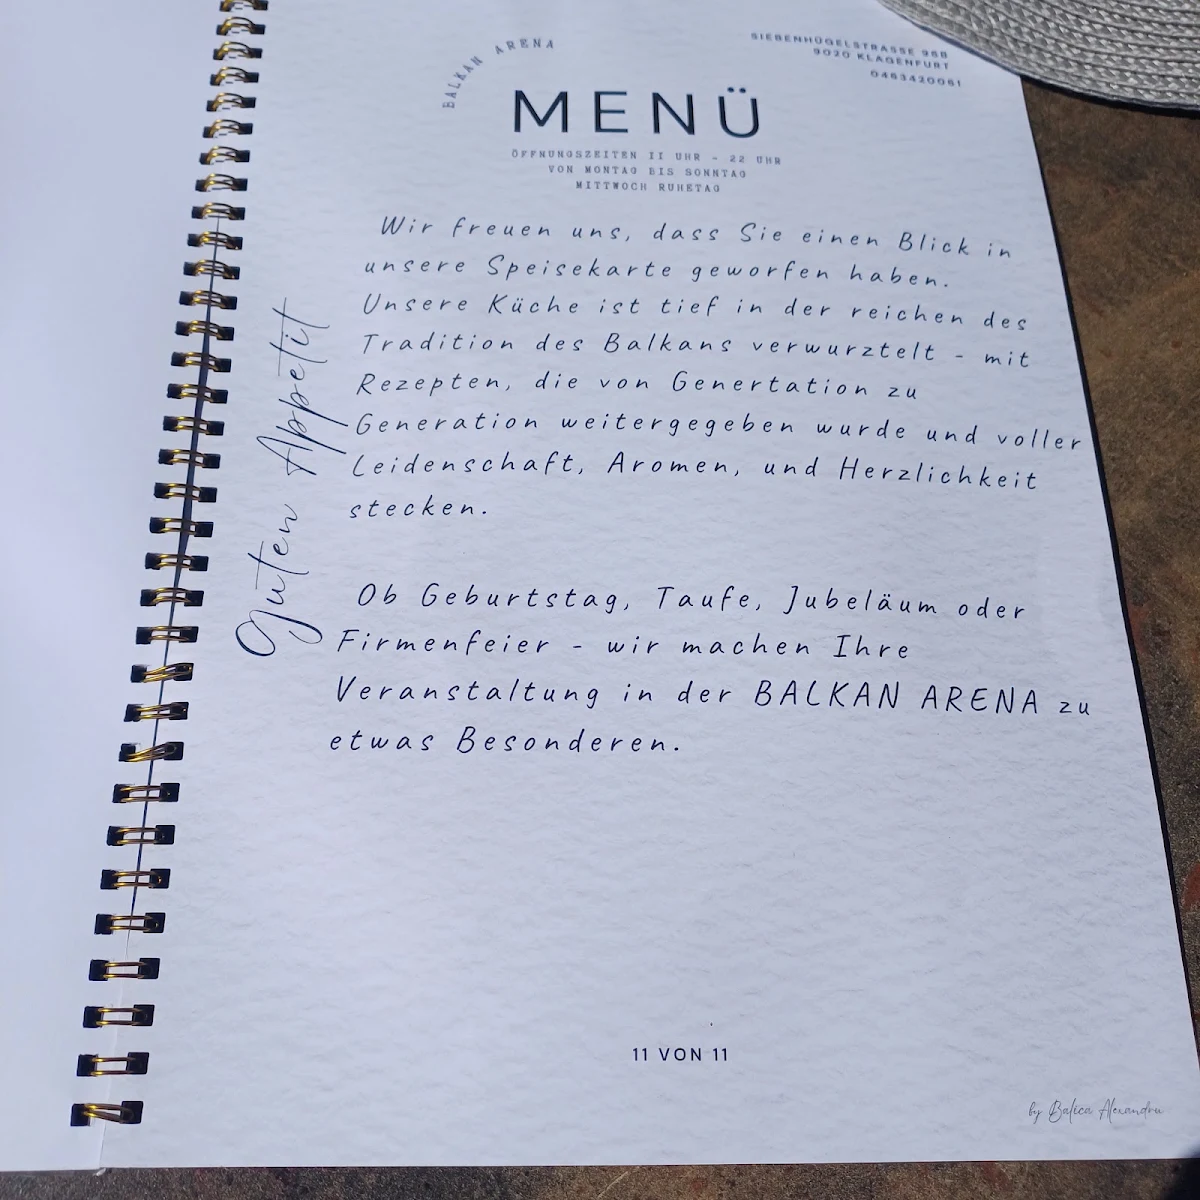 BALKAN ARENA
SIEBENHÜGELSTRASSE 96B
9020 KLAGENFURT
0463420061
MENÜ
ÖFFNUNGSZEITEN 11 UHR - 22 UHR
VON MONTAG BIS SONNTAG
MITTWOCH RUHETAG
Wir freuen uns, dass Sie einen Blick in
unsere Speisekarte geworfen haben.
Unsere Küche ist tief in der reichen des
Tradition des Balkans verwurztelt - mit
Rezepten, die von Genertation zu
Generation weitergegeben wurde und voller
Leidenschaft, Aromen, und Herzlichkeit
stecken.
Guten Appetit
Ob Geburtstag, Taufe, Jubeläum oder
Firmenfeier - wir machen Ihre
Veranstaltung in der BALKAN ARENA zu
etwas Besonderen.
11 VON 11
by Balica Alexandru